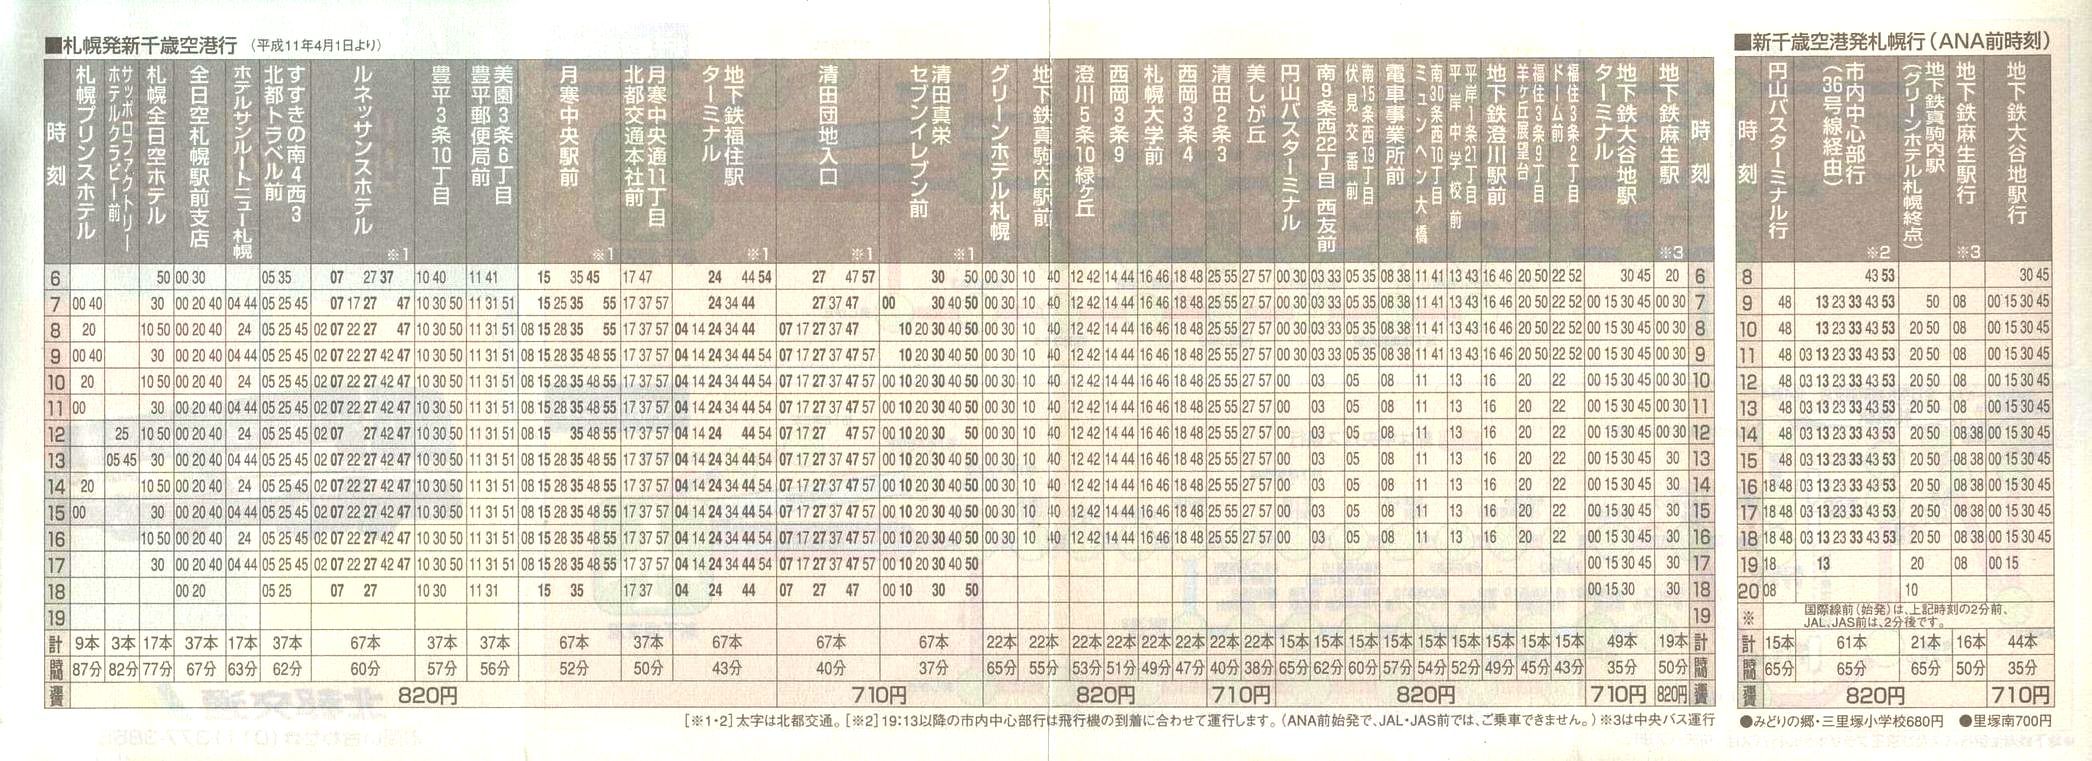 ■札幌発新千歳空港行 (平成11年4月1日より)
時刻
札幌プリンスホテル
サッポロファクトリー ホテルクラビー前
札幌全日空ホテル
全日空札幌駅前支店
ホテルサンルートニュー札幌
すすきの南4西3 北都トラベル前
ルネッサンスホテル ※1
豊平3条10丁目
美園3条6丁目 豊平郵便局前
月寒中央駅前 ※1
月寒中央通11丁目 北都交通本社前
地下鉄福住駅ターミナル ※1
清田団地入口 ※1
清田真栄 セブンイレブン前 ※1
グリーンホテル札幌
地下鉄真駒内駅前
澄川5条10緑ヶ丘
西岡3条9
札幌大学前
西岡3条4
清田2条3
美しが丘
円山バスターミナル
南9条西22丁目 西友前
南15条西19丁目 伏見交番前
電車事業所前
南30条西10丁目 ミュンヘン大橋
平岸1条21丁目 平岸中学校前
地下鉄澄川駅前
福住3条9丁目 羊ヶ丘展望台
福住3条2丁目 ドーム前
地下鉄大谷地駅ターミナル
地下鉄麻生駅 ※3
時刻
6 50 00 30 05 35 07 27 37 10 40 11 41 15 35 45 17 47 24 44 54 27 47 57 30 50 00 30 10 40 12 42 14 44 16 46 18 48 25 55 27 57 00 30 03 33 05 35 08 38 11 41 13 43 16 46 20 50 22 52 30 45 20 6
7 00 40 30 00 20 40 04 44 05 25 45 07 17 27 47 10 30 50 11 31 51 15 25 35 55 17 37 57 24 34 44 27 37 47 00 30 40 50 00 30 10 40 12 42 14 44 16 46 18 48 25 55 27 57 00 30 03 33 05 35 08 38 11 41 13 43 16 46 20 50 22 52 00 15 30 45 00 30 7
8 20 10 50 00 20 40 24 05 25 45 02 07 22 27 47 10 30 50 11 31 51 08 15 28 35 55 17 37 57 04 14 24 34 44 07 17 27 37 47 10 20 30 40 50 00 30 10 40 12 42 14 44 16 46 18 48 25 55 27 57 00 30 03 33 05 35 08 38 11 41 13 43 16 46 20 50 22 52 00 15 30 45 00 30 8
9 00 40 30 00 20 40 04 44 05 25 45 02 07 22 27 42 47 10 30 50 11 31 51 08 15 28 35 48 55 17 37 57 04 14 24 34 44 54 07 17 27 37 47 57 10 20 30 40 50 00 30 10 40 12 42 14 44 16 46 18 48 25 55 27 57 00 30 03 33 05 35 08 38 11 41 13 43 16 46 20 50 22 52 00 15 30 45 00 30 9
10 20 10 50 00 20 40 24 05 25 45 02 07 22 27 42 47 10 30 50 11 31 51 08 15 28 35 48 55 17 37 57 04 14 24 34 44 54 07 17 27 37 47 57 00 10 20 30 40 50 00 30 10 40 12 42 14 44 16 46 18 48 25 55 27 57 00 03 05 08 11 13 16 20 22 00 15 30 45 00 30 10
11 00 30 00 20 40 04 44 05 25 45 02 07 22 27 42 47 10 30 50 11 31 51 08 15 28 35 48 55 17 37 57 04 14 24 34 44 54 07 17 27 37 47 57 00 10 20 30 40 50 00 30 10 40 12 42 14 44 16 46 18 48 25 55 27 57 00 03 05 08 11 13 16 20 22 00 15 30 45 00 30 11
12 25 10 50 00 20 40 24 05 25 45 02 07 27 42 47 10 30 50 11 31 51 08 15 35 48 55 17 37 57 04 14 24 44 54 07 17 27 47 57 00 10 20 30 50 00 30 10 40 12 42 14 44 16 46 18 48 25 55 27 57 00 03 05 08 11 13 16 20 22 00 15 30 45 00 30 12
13 05 45 30 00 20 40 04 44 05 25 45 02 07 22 27 42 47 10 30 50 11 31 51 08 15 28 35 48 55 17 37 57 04 14 24 34 44 54 07 17 27 37 47 57 00 10 20 30 40 50 00 30 10 40 12 42 14 44 16 46 18 48 25 55 27 57 00 03 05 08 11 13 16 20 22 00 15 30 45 30 13
14 20 10 50 00 20 40 24 05 25 45 02 07 22 27 42 47 10 30 50 11 31 51 08 15 28 35 48 55 17 37 57 04 14 24 34 44 54 07 17 27 37 47 57 00 10 20 30 40 50 00 30 10 40 12 42 14 44 16 46 18 48 25 55 27 57 00 03 05 08 11 13 16 20 22 00 15 30 45 30 14
15 00 30 00 20 40 04 44 05 25 45 02 07 22 27 42 47 10 30 50 11 31 51 08 15 28 35 48 55 17 37 57 04 14 24 34 44 54 07 17 27 37 47 57 00 10 20 30 40 50 00 30 10 40 12 42 14 44 16 46 18 48 25 55 27 57 00 03 05 08 11 13 16 20 22 00 15 30 45 30 15
16 10 50 00 20 40 24 05 25 45 02 07 22 27 42 47 10 30 50 11 31 51 08 15 28 35 48 55 17 37 57 04 14 24 34 44 54 07 17 27 37 47 57 00 10 20 30 40 50 00 30 10 40 12 42 14 44 16 46 18 48 25 55 27 57 00 03 05 08 11 13 16 20 22 00 15 30 45 30 16
17 30 00 20 40 04 44 05 25 45 02 07 22 27 42 47 10 30 50 11 31 51 08 15 28 35 48 55 17 37 57 04 14 24 34 44 54 07 17 27 37 47 57 00 10 20 30 40 50 00 15 30 45 30 17
18 00 20 05 25 07 27 10 30 11 31 15 35 17 37 04 24 44 07 27 47 00 10 30 50 00 15 30 30 18
19 19
計 9本 3本 17本 37本 17本 37本 67本 37本 37本 67本 37本 67本 67本 67本 22本 22本 22本 22本 22本 22本 22本 22本 15本 15本 15本 15本 15本 15本 15本 15本 15本 49本 19本 計
時間 87分 82分 77分 67分 63分 62分 60分 57分 56分 52分 50分 43分 40分 37分 65分 55分 53分 51分 49分 47分 40分 38分 65分 62分 60分 57分 54分 52分 49分 45分 43分 35分 50分 時間
運賃 820円 710円 820円 710円 820円 710円 820円 運賃
[※1・2]太字は北都交通。[※2]19:13以降の市内中心部行は飛行機の到着に合わせて運行します。(ANA前始発で、JAL・JAS前では、ご乗車できません。)※3は中央バス運行
■新千歳空港発札幌行(ANA前時刻)
時刻
円山バスターミナル行
市内中心部行 (36号線経由) ※2
地下鉄真駒内駅 (グリーンホテル札幌終点)
地下鉄麻生駅行 ※3
地下鉄大谷地駅行
8 43 53 30 45
9 48 13 23 33 43 53 50 08 00 15 30 45
10 48 13 23 33 43 53 20 50 08 00 15 30 45
11 48 03 13 23 33 43 53 20 50 08 00 15 30 45
12 48 03 13 23 33 43 53 20 50 08 00 15 30 45
13 48 03 13 23 33 43 53 20 50 08 00 15 30 45
14 48 03 13 23 33 43 53 20 50 08 38 00 15 30 45
15 48 03 13 23 33 43 53 20 50 08 38 00 15 30 45
16 18 48 03 13 23 33 43 53 20 50 08 38 00 15 30 45
17 18 48 03 13 23 33 43 53 20 50 08 38 00 15 30 45
18 18 48 03 13 23 33 43 53 20 50 08 38 00 15 30 45
19 18 13 20 08 00 15
20 08 10
※ 国際線前(始発)は、上記時刻の2分前、
JAL、JAS前は、2分後です。
計 15本 61本 21本 16本 44本
時間 65分 65分 65分 50分 35分
運賃 820円 710円
●みどりの郷・三里塚小学校680円 ●里塚南700円